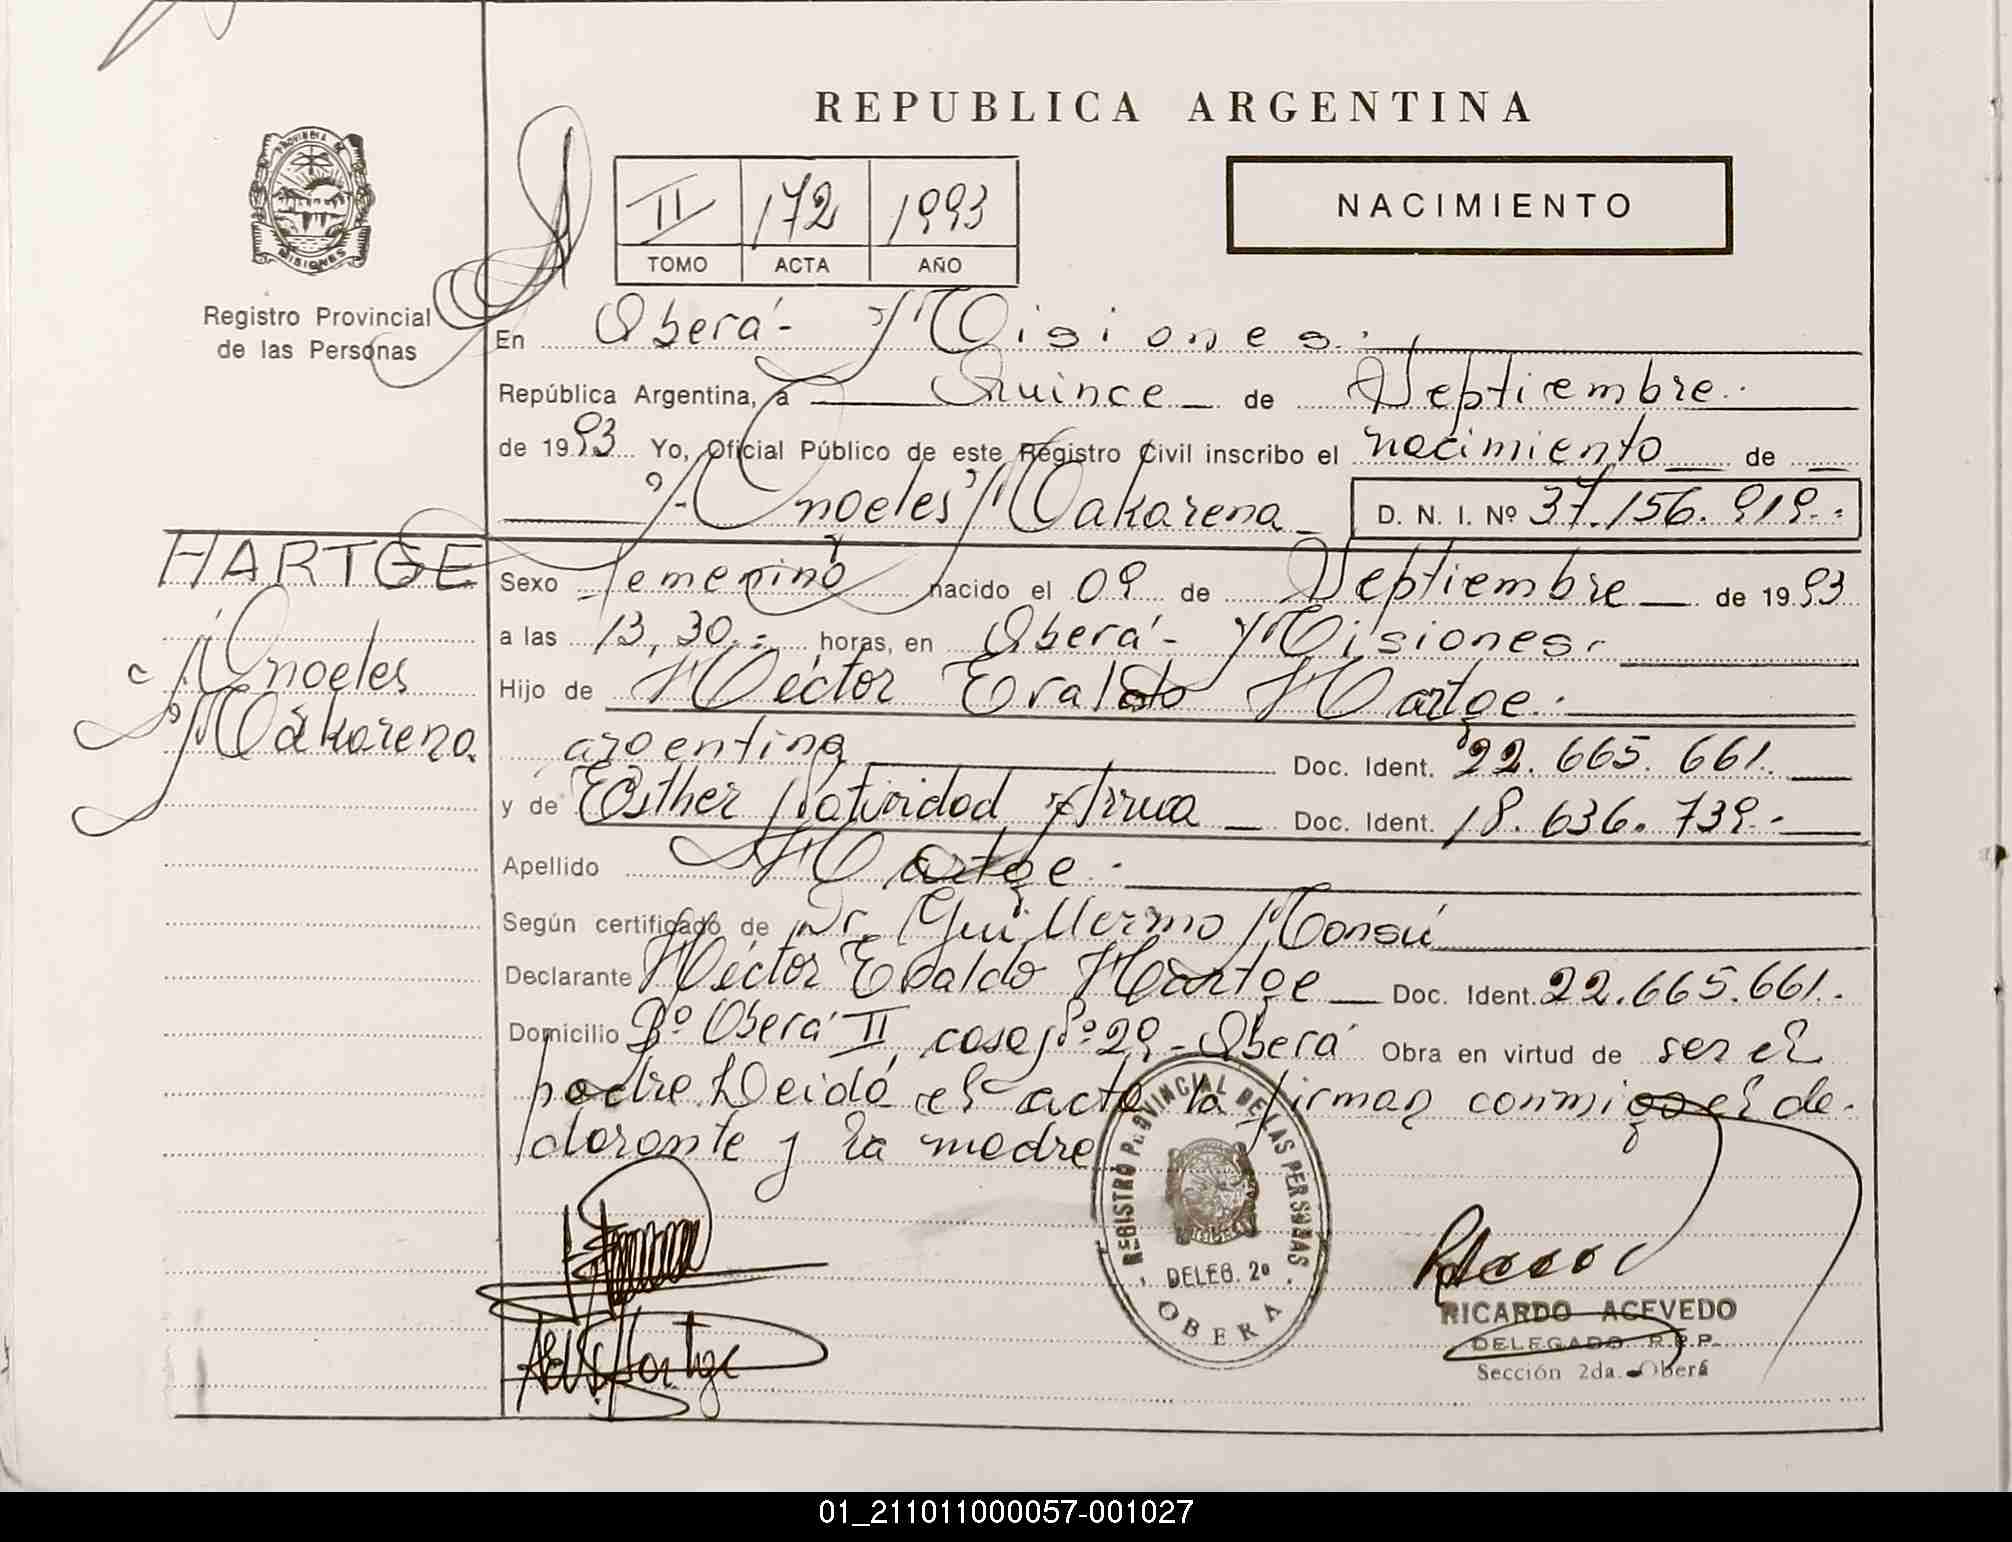 REPUBLICA ARGENTINA
PROVINCIA DE
MISIONES
Registro Provincial
de las Personas
II 172 1993
TOMO ACTA AÑO
NACIMIENTO
En Oberá - Misiones.
República Argentina, a Quince de Septiembre.
de 1993 Yo, Oficial Público de este Registro Civil inscribo el nacimiento de
Makarena D. N. I. Nº 37.156.919.-
HARTGE
Makarena.
Sexo Femenino nacido el 09 de Septiembre de 1993
a las 13,30.- horas, en Oberá - Misiones.
Hijo de Héctor Evaldo Hartge.
argentina Doc. Ident. 22.665.661.
y de Esther Natividad Arrua Doc. Ident. 18.636.739.-
Apellido Hartge.
Según certificado de Dr. Guillermo Monsú
Declarante Héctor Evaldo Hartge Doc. Ident. 22.665.661.
Domicilio Bº Oberá II, casa Nº 29 - Oberá Obra en virtud de ser el
padre. Leida el acta la firman conmigo el de-
clarante y la madre
REGISTRO PROVINCIAL DE LAS PERSONAS
DELEG. 2º
OBERA
Hartge
RICARDO ACEVEDO
DELEGADO R.P.P.
Sección 2da. - Oberá
01_211011000057-001027